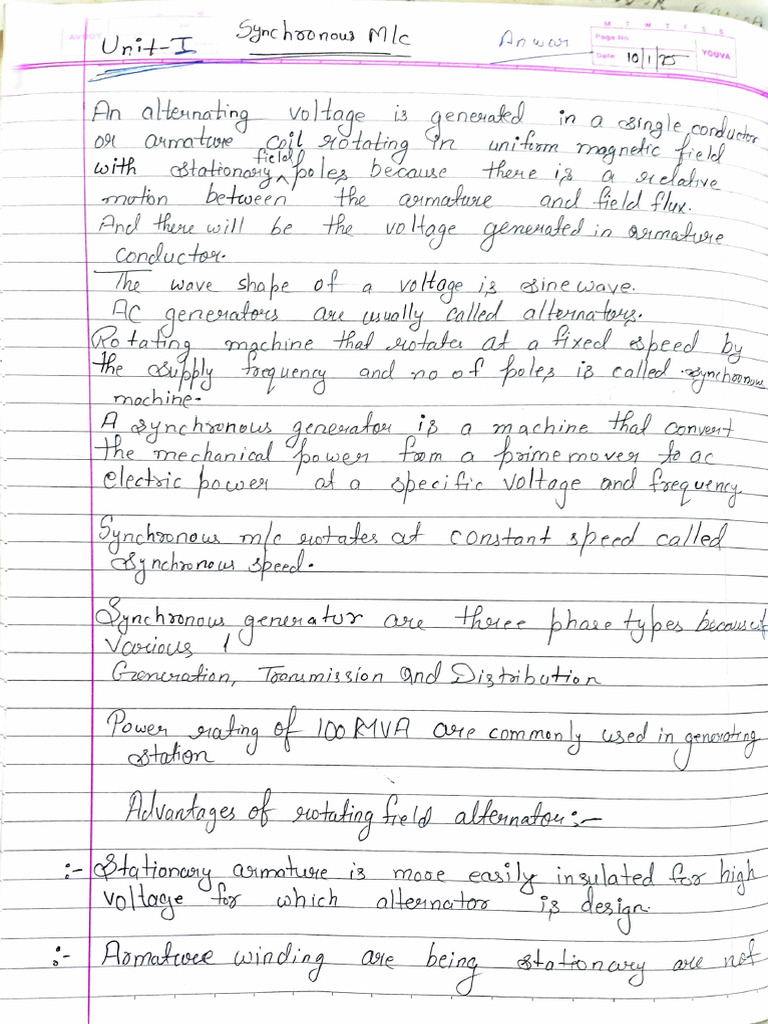 Synchronous M/c
Unit-I
Anwar
M T W T F S S
Page No.
Date 10/1/25
YOUVA
An alternating voltage is generated in a single conductor
or armature coil rotating in uniform magnetic field
with stationary field poles because there is a relative
motion between the armature and field flux.
And there will be the voltage generated in armature
conductor.
The wave shape of a voltage is sine wave.
AC generators are usually called alternators.
Rotating machine that rotates at a fixed speed by
the supply frequency and no of poles is called synchronous
machine.
A synchronous generator is a machine that convert
the mechanical power from a prime mover to ac
electric power at a specific voltage and frequency.
Synchronous m/c rotates at constant speed called
synchronous speed.
Synchronous generator are three phase types because
various
Generation, Transmission and Distribution
Power rating of 100 MVA are commonly used in generating
station
Advantages of rotating field alternator:-
:- Stationary armature is more easily insulated for high
voltage for which alternator is design.
:- Armature winding are being stationary are not